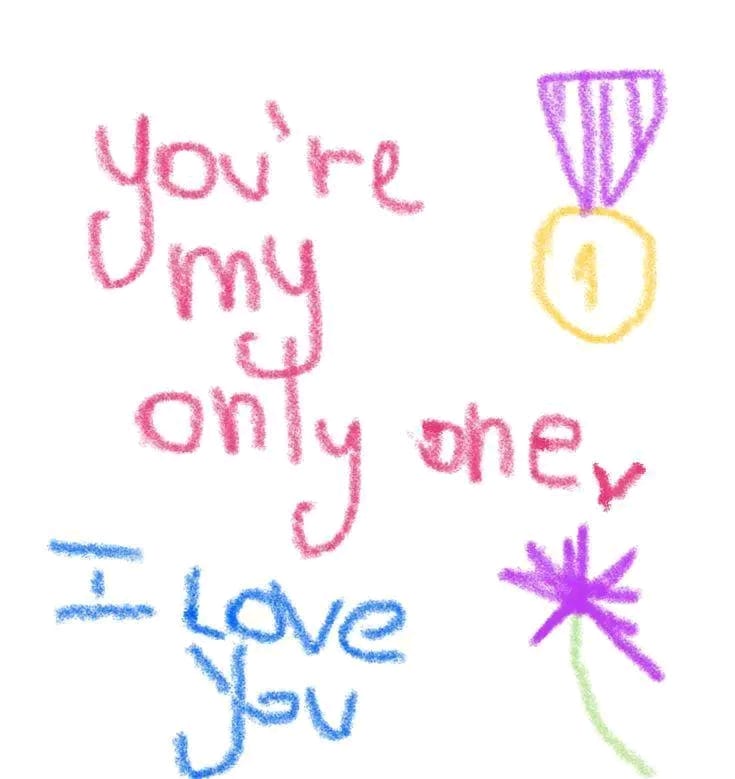 you're
1
my
only one
I Love
you